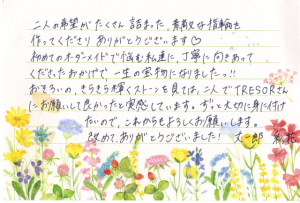 二人の希望がたくさん詰まった、素敵な指輪を
作ってくださり ありがとうございます♡
初めてのオーダーメイドで悩む私達に、丁寧に向きあって
くださったおかげで 一生の宝物になりました。!!
おそろいの、きらきら輝くストーンを見ては、二人でTRESORさん
にお願いして良かったと実感しています。ずっと大切に身に付け
たいので、これからもよろしくお願いします。
改めて、ありがとうございました!